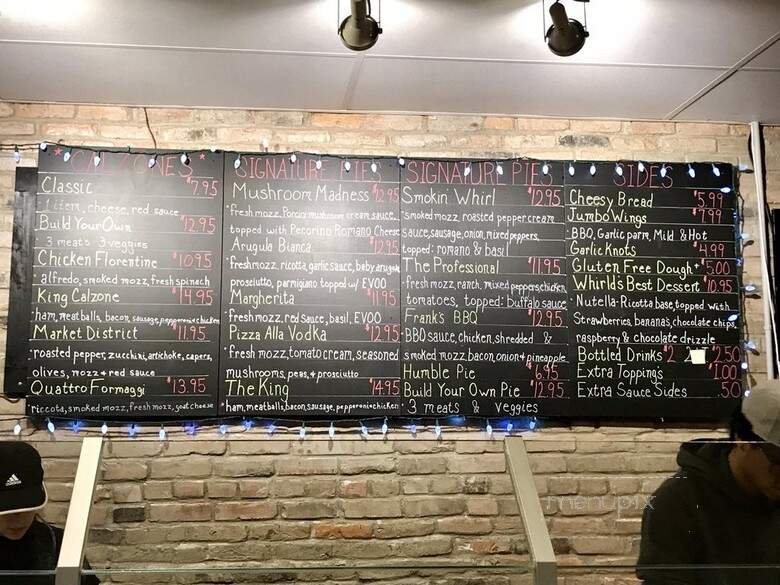 * CALZONES *
Classic $7.95
1 item, cheese, red sauce
Build Your Own $12.95
3 meats 3 veggies
Chicken Florentine $10.95
alfredo, smoked mozz, fresh spinach
King Calzone $14.95
ham, meatballs, bacon, sausage, pepperoni+chicken
Market District $11.95
roasted pepper, zucchini, artichoke, capers,
olives, mozz+red sauce
Quattro Formaggi $13.95
riccota, smoked mozz, fresh mozz, goat cheese
SIGNATURE PIES
Mushroom Madness $12.95
fresh mozz, Porcini mushroom cream sauce,
topped with Pecorino Romano Cheese
Arugula Bianca $12.95
fresh mozz, ricotta, garlic sauce, baby arugula
prosciutto, parmigiano topped w/ EVOO
Margherita $11.95
fresh mozz, red sauce, basil, EVOO
Pizza Alla Vodka $12.95
fresh mozz, tomato cream, seasoned
mushrooms, peas, + prosciutto
The King $14.95
ham, meatballs, bacon, sausage, pepperoni+chicken
SIGNATURE PIES
Smokin Whirl $12.95
smoked mozz, roasted pepper cream
sauce, sausage, onion, mixed peppers,
topped: romano & basil
The Professional $11.95
fresh mozz, ranch, mixed peppers, chicken,
tomatoes, topped: buffalo sauce
Frank's BBQ $12.95
BBQ sauce, chicken, shredded &
smoked mozz, bacon, onion + pineapple
Humble Pie $6.95
Build Your Own Pie $12.95
3 meats & veggies
SIDES
Cheesy Bread $5.99
Jumbo Wings $7.99
BBQ, Garlic parm, Mild & Hot
Garlic Knots $4.99
Gluten Free Dough + $5.00
Whirld's Best Dessert $10.95
Nutella-Ricotta base, topped with
Strawberries, banana's, chocolate chips,
raspberry & chocolate drizzle
Bottled Drinks $2 $2.50
Extra Topping's $1.00
Extra Sauce Sides .50
adidas
menupix